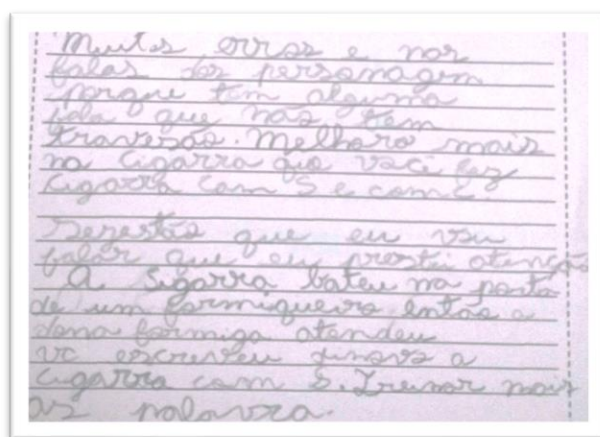 Muitos erros e nos
falas dos personagem
porque tem alguma
que nos tem
travesão. Melhora mais
na cigarra que você fez
cigarra com S e com c.
Segestão que eu vou
falar que eu prestei atenção
A Sigarra bateu na porta
de um formiqueiro então a
dona formiga atendeu
vc escreveu a
cigarra com S. Treinar mais
as palavra.